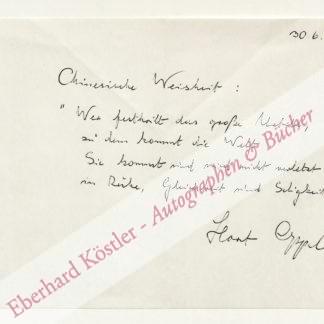 30 6.
Chinesische Weisheit :
"Wer festhält das große Urbild,
zu dem kommt die Welt.
Sie kommt und wird nicht verletzt
in Ruhe, Gleichheit und Seligkeit
Horst
Eberhard Köstler - Autographen & Bücher